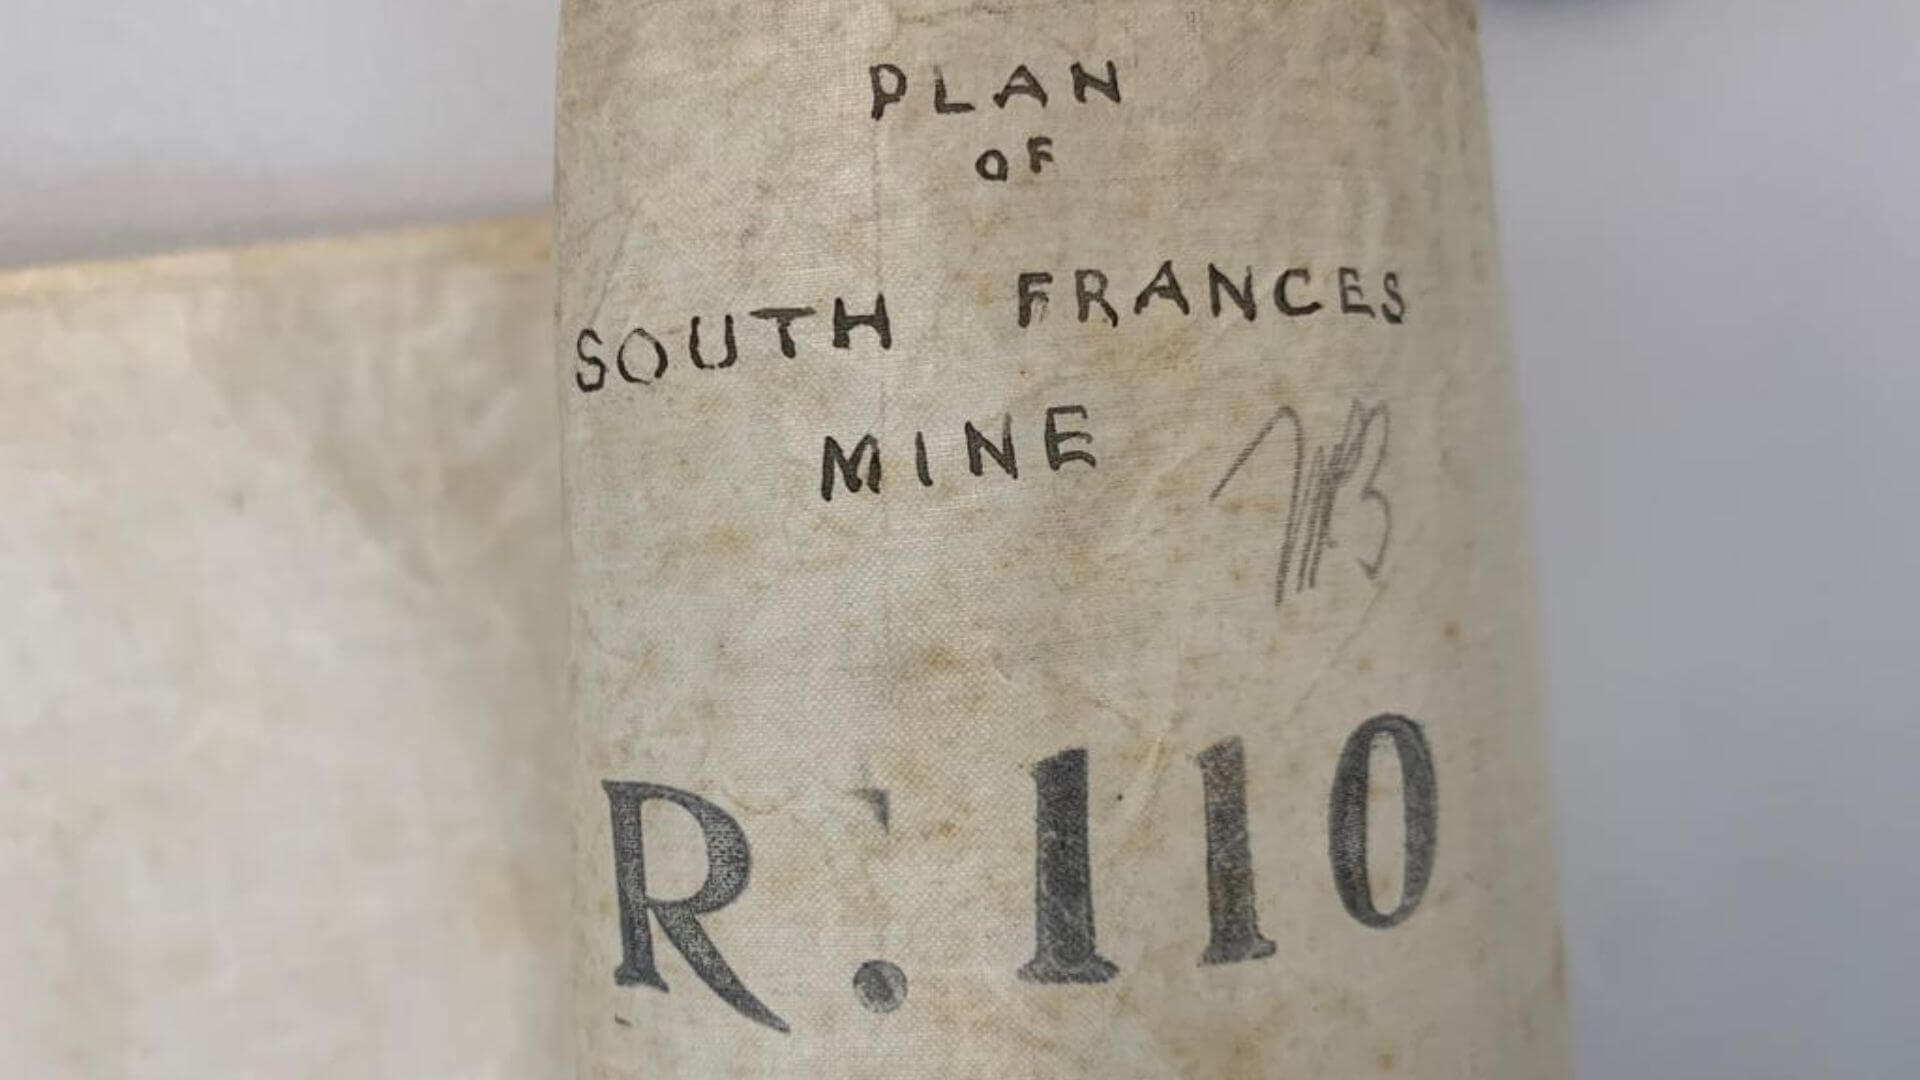 PLAN
OF
SOUTH FRANCES
MINE
R.110